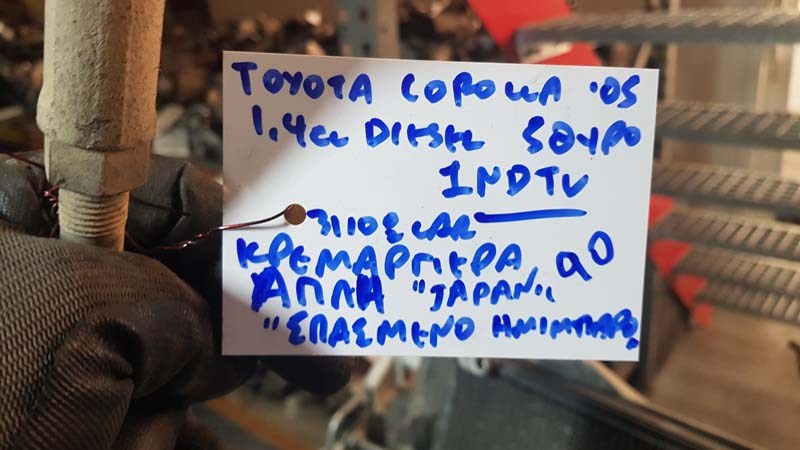 TOYOTA COROLLA '05
1.4cc DIESEL 5ΘΥΡΟ
1NDTV
ΚΡΕΜΑΡΓΙΕΡΑ 90
ΑΠΛΗ "JAPAN"
"ΣΠΑΣΜΕΝΟ ΗΜΙΜΠΑΡΟ"